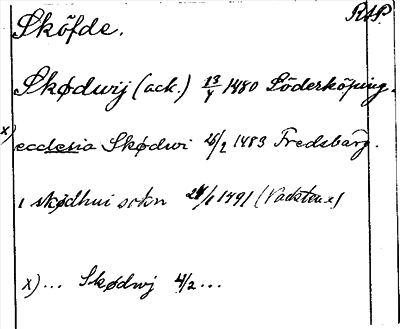 Sköfde.
RAP.
Skødwij (ack.) 13/4 1480 Söderköping.
x) ecclesia Skødwi 25/2 1483 Fredsbärg.
i skødhui sokn 24/1 1491 (Vadsten x)
x) ... Skødwj 4/2 ...